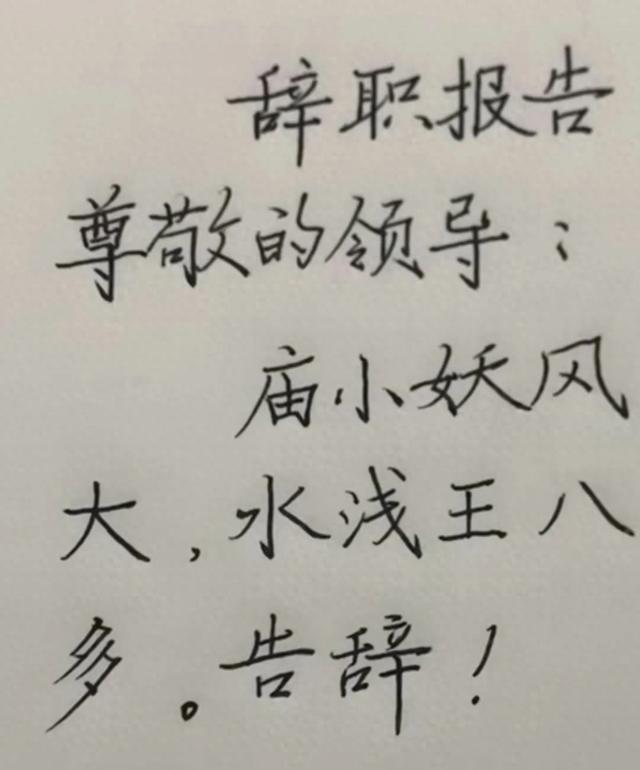 辞职报告
尊敬的领导：
庙小妖风
大，水浅王八
多。告辞！